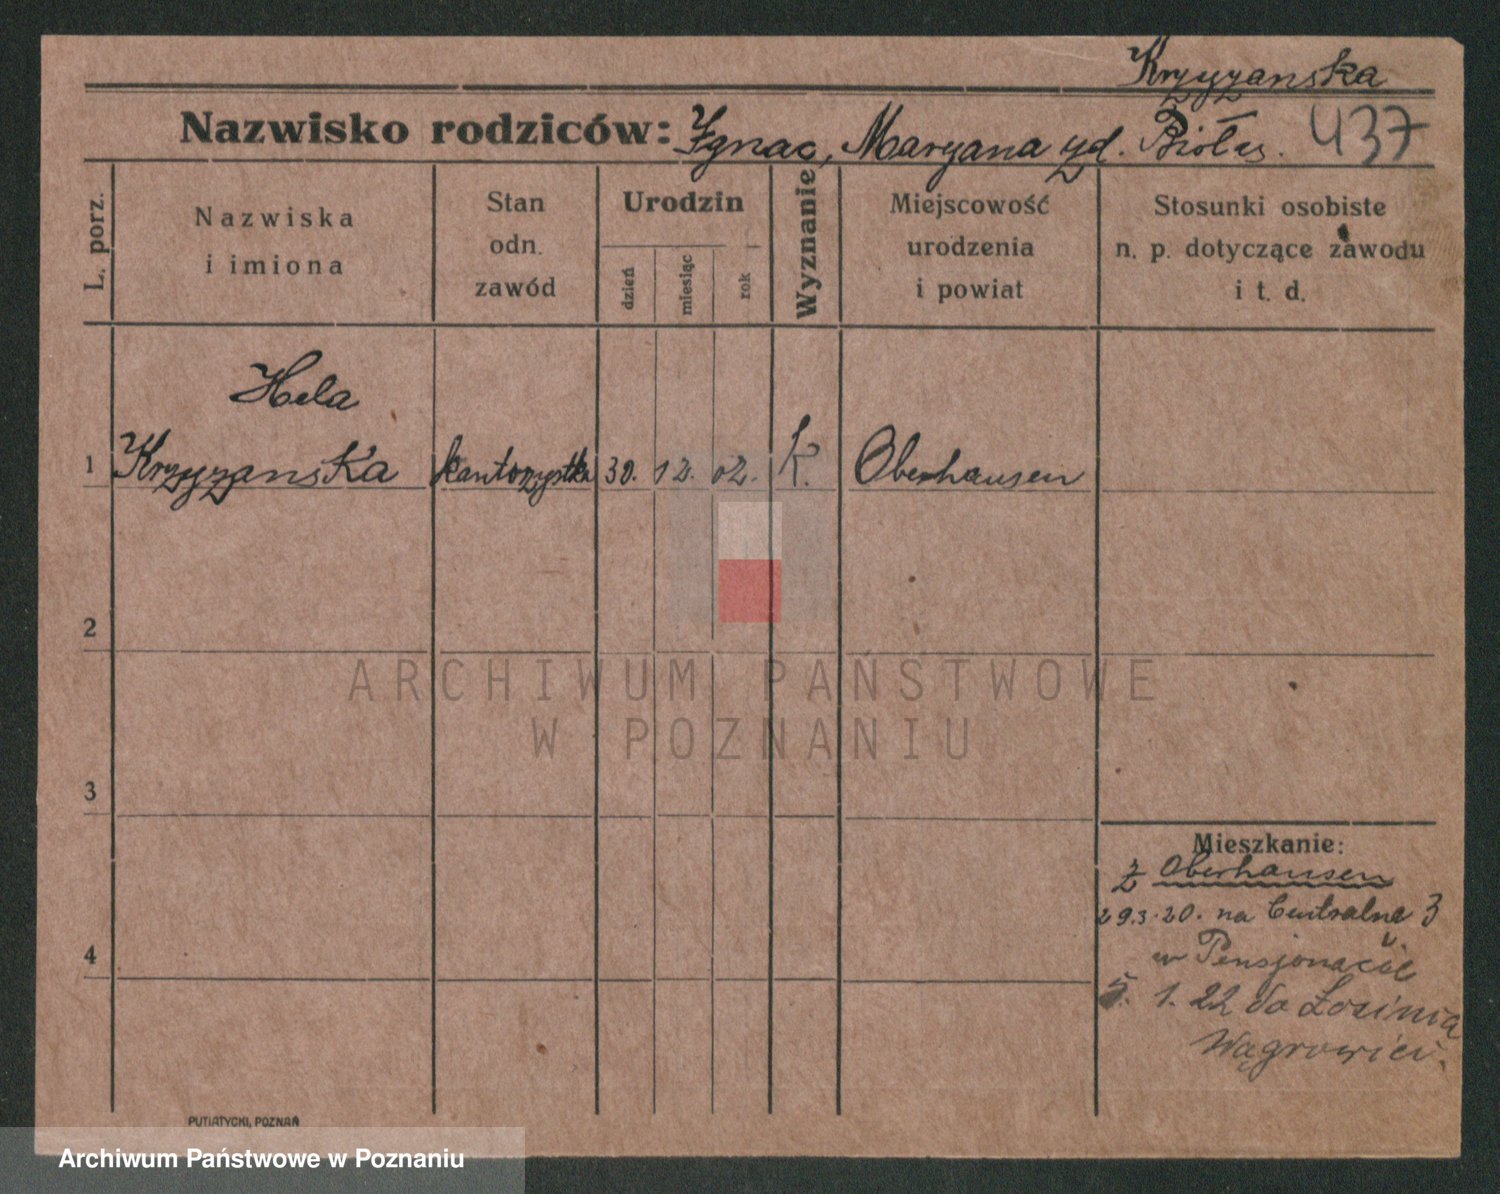 Krzyżanska
Nazwisko rodziców: Ignac, Maryana zd. 437
L. porz.
Nazwiska
i imiona
Stan
odn.
zawód
Urodzin
dzień
miesiąc
rok
Wyznanie
Miejscowość
urodzenia
i powiat
Stosunki osobiste
n. p. dotyczące zawodu
i t. d.
Hela
1 Krzyżanska kantorzystka 30. 12. 02. k. Oberhausen
2
3
4
Mieszkanie:
z Oberhausen
29.3.20. na Centralna 3
w Pensjonacie
5. 1. 22 do
Wągrowiec.
PUTIATYCKI, POZNAŃ
ARCHIWUM PAŃSTWOWE
W POZNANIU
Archiwum Państwowe w Poznaniu